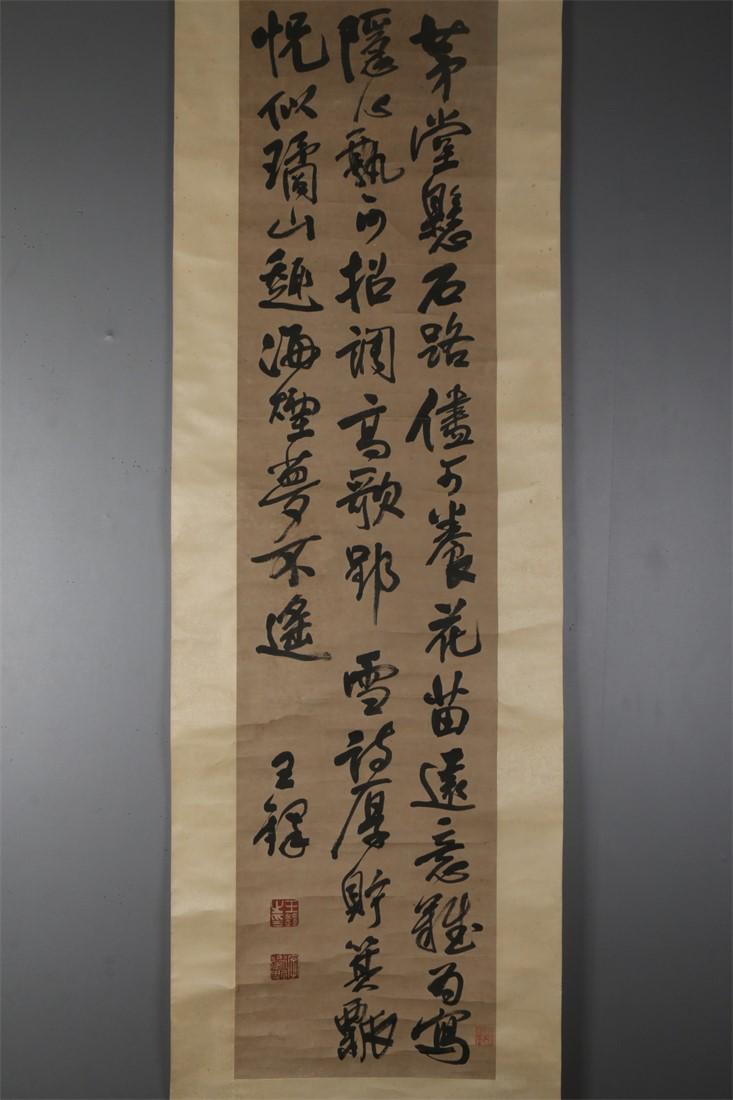 茅堂懸石路儘可養花苗遠意難為寫
隱心孰可招調高歌郢雪詩厚貯箕瓢
恍似璚山趣海煙夢不遙
王鐸
王鐸之印